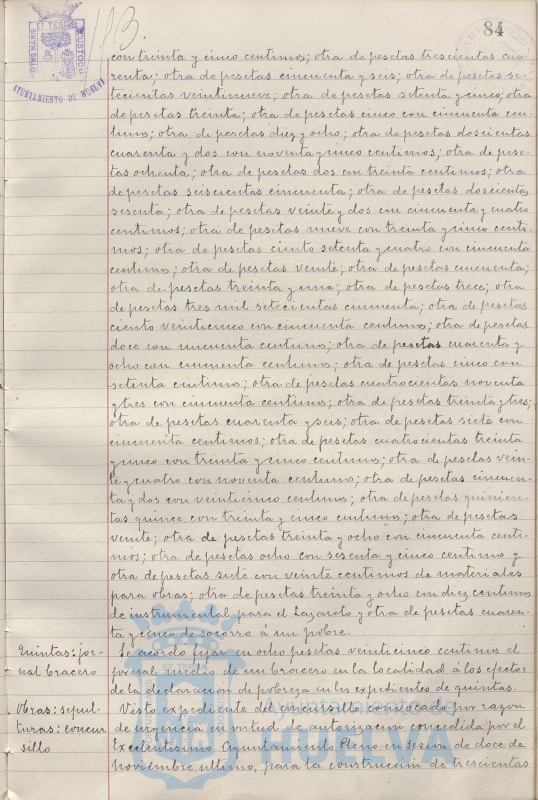 113.
84
PORTUS MARIS ET TERRÆ CUSTODIA
AYUNTAMIENTO DE HUELVA
con treinta y cinco centimos; otra de pesetas trescientas cua-
renta; otra de pesetas cincuenta y seis; otra de pesetas se-
tecientas veintinueve; otra de pesetas setenta y cinco; otra
de pesetas treinta; otra de pesetas cinco con cincuenta cen-
timos; otra de pesetas diez y ocho; otra de pesetas doscientas
cuarenta y dos con noventa y cinco centimos; otra de pese-
tas ochenta; otra de pesetas dos con treinta centimos; otra
de pesetas seiscientas cincuenta; otra de pesetas doscientas
sesenta; otra de pesetas veinte y dos con cincuenta y cuatro
centimos; otra de pesetas nueve con treinta y cinco centi-
mos; otra de pesetas ciento setenta y cuatro con cincuenta
centimos; otra de pesetas veinte; otra de pesetas cincuenta;
otra de pesetas treinta y una; otra de pesetas trece; otra
de pesetas tres mil setecientas cincuenta; otra de pesetas
ciento veinticinco con cincuenta centimos; otra de pesetas
doce con cincuenta centimos; otra de pesetas cuarenta y
ocho con cincuenta centimos; otra de pesetas cinco con
setenta centimos; otra de pesetas cuatrocientas noventa
y tres con cincuenta centimos; otra de pesetas treinta y tres;
otra de pesetas cuarenta y seis; otra de pesetas siete con
cincuenta centimos; otra de pesetas cuatrocientas treinta
y cinco con treinta y cinco centimos; otra de pesetas vein-
te y cuatro con noventa centimos; otra de pesetas cincuen-
ta y dos con veinticinco centimos; otra de pesetas quinien-
tas quince con treinta y cinco centimos; otra de pesetas
veinte; otra de pesetas treinta y ocho con cincuenta centi-
mos; otra de pesetas ocho con sesenta y cinco centimos y
otra de pesetas siete con veinte centimos de materiales
para obras; otra de pesetas treinta y ocho con diez centimos
de instrumental para el Lazareto y otra de pesetas cuaren-
ta y cinco de socorro á un pobre.
Quintas: jor-
nal bracero
Se acordó fijar en ocho pesetas veinticinco centimos el
jornal medio de un bracero en la localidad á los efectos
de la declaracion de pobreza en los expedientes de quintas.
Obras: sepul-
turas: concur-
sillo
Visto expediente del concursillo convocado por razon
de urgencia en virtud de autorizacion concedida por el
Excelentisimo Ayuntamiento Pleno en sesion de doce de
noviembre ultimo, para la construccion de trescientas
Ayuntamiento de
HUELVA